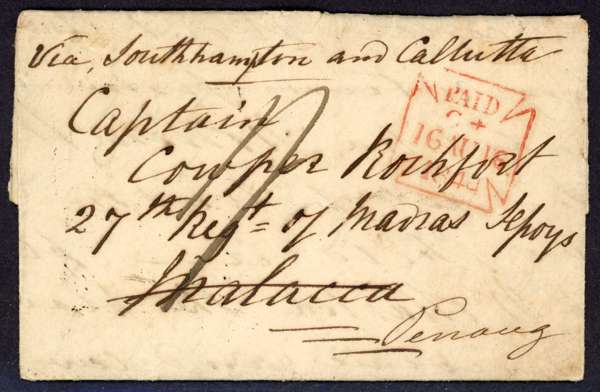 Via, Southhampton and Calcutta
Captain
Cowper Rochfort
27th Regt of Madras Sepoys
Malacca
Penang
PAID
16 AU 16